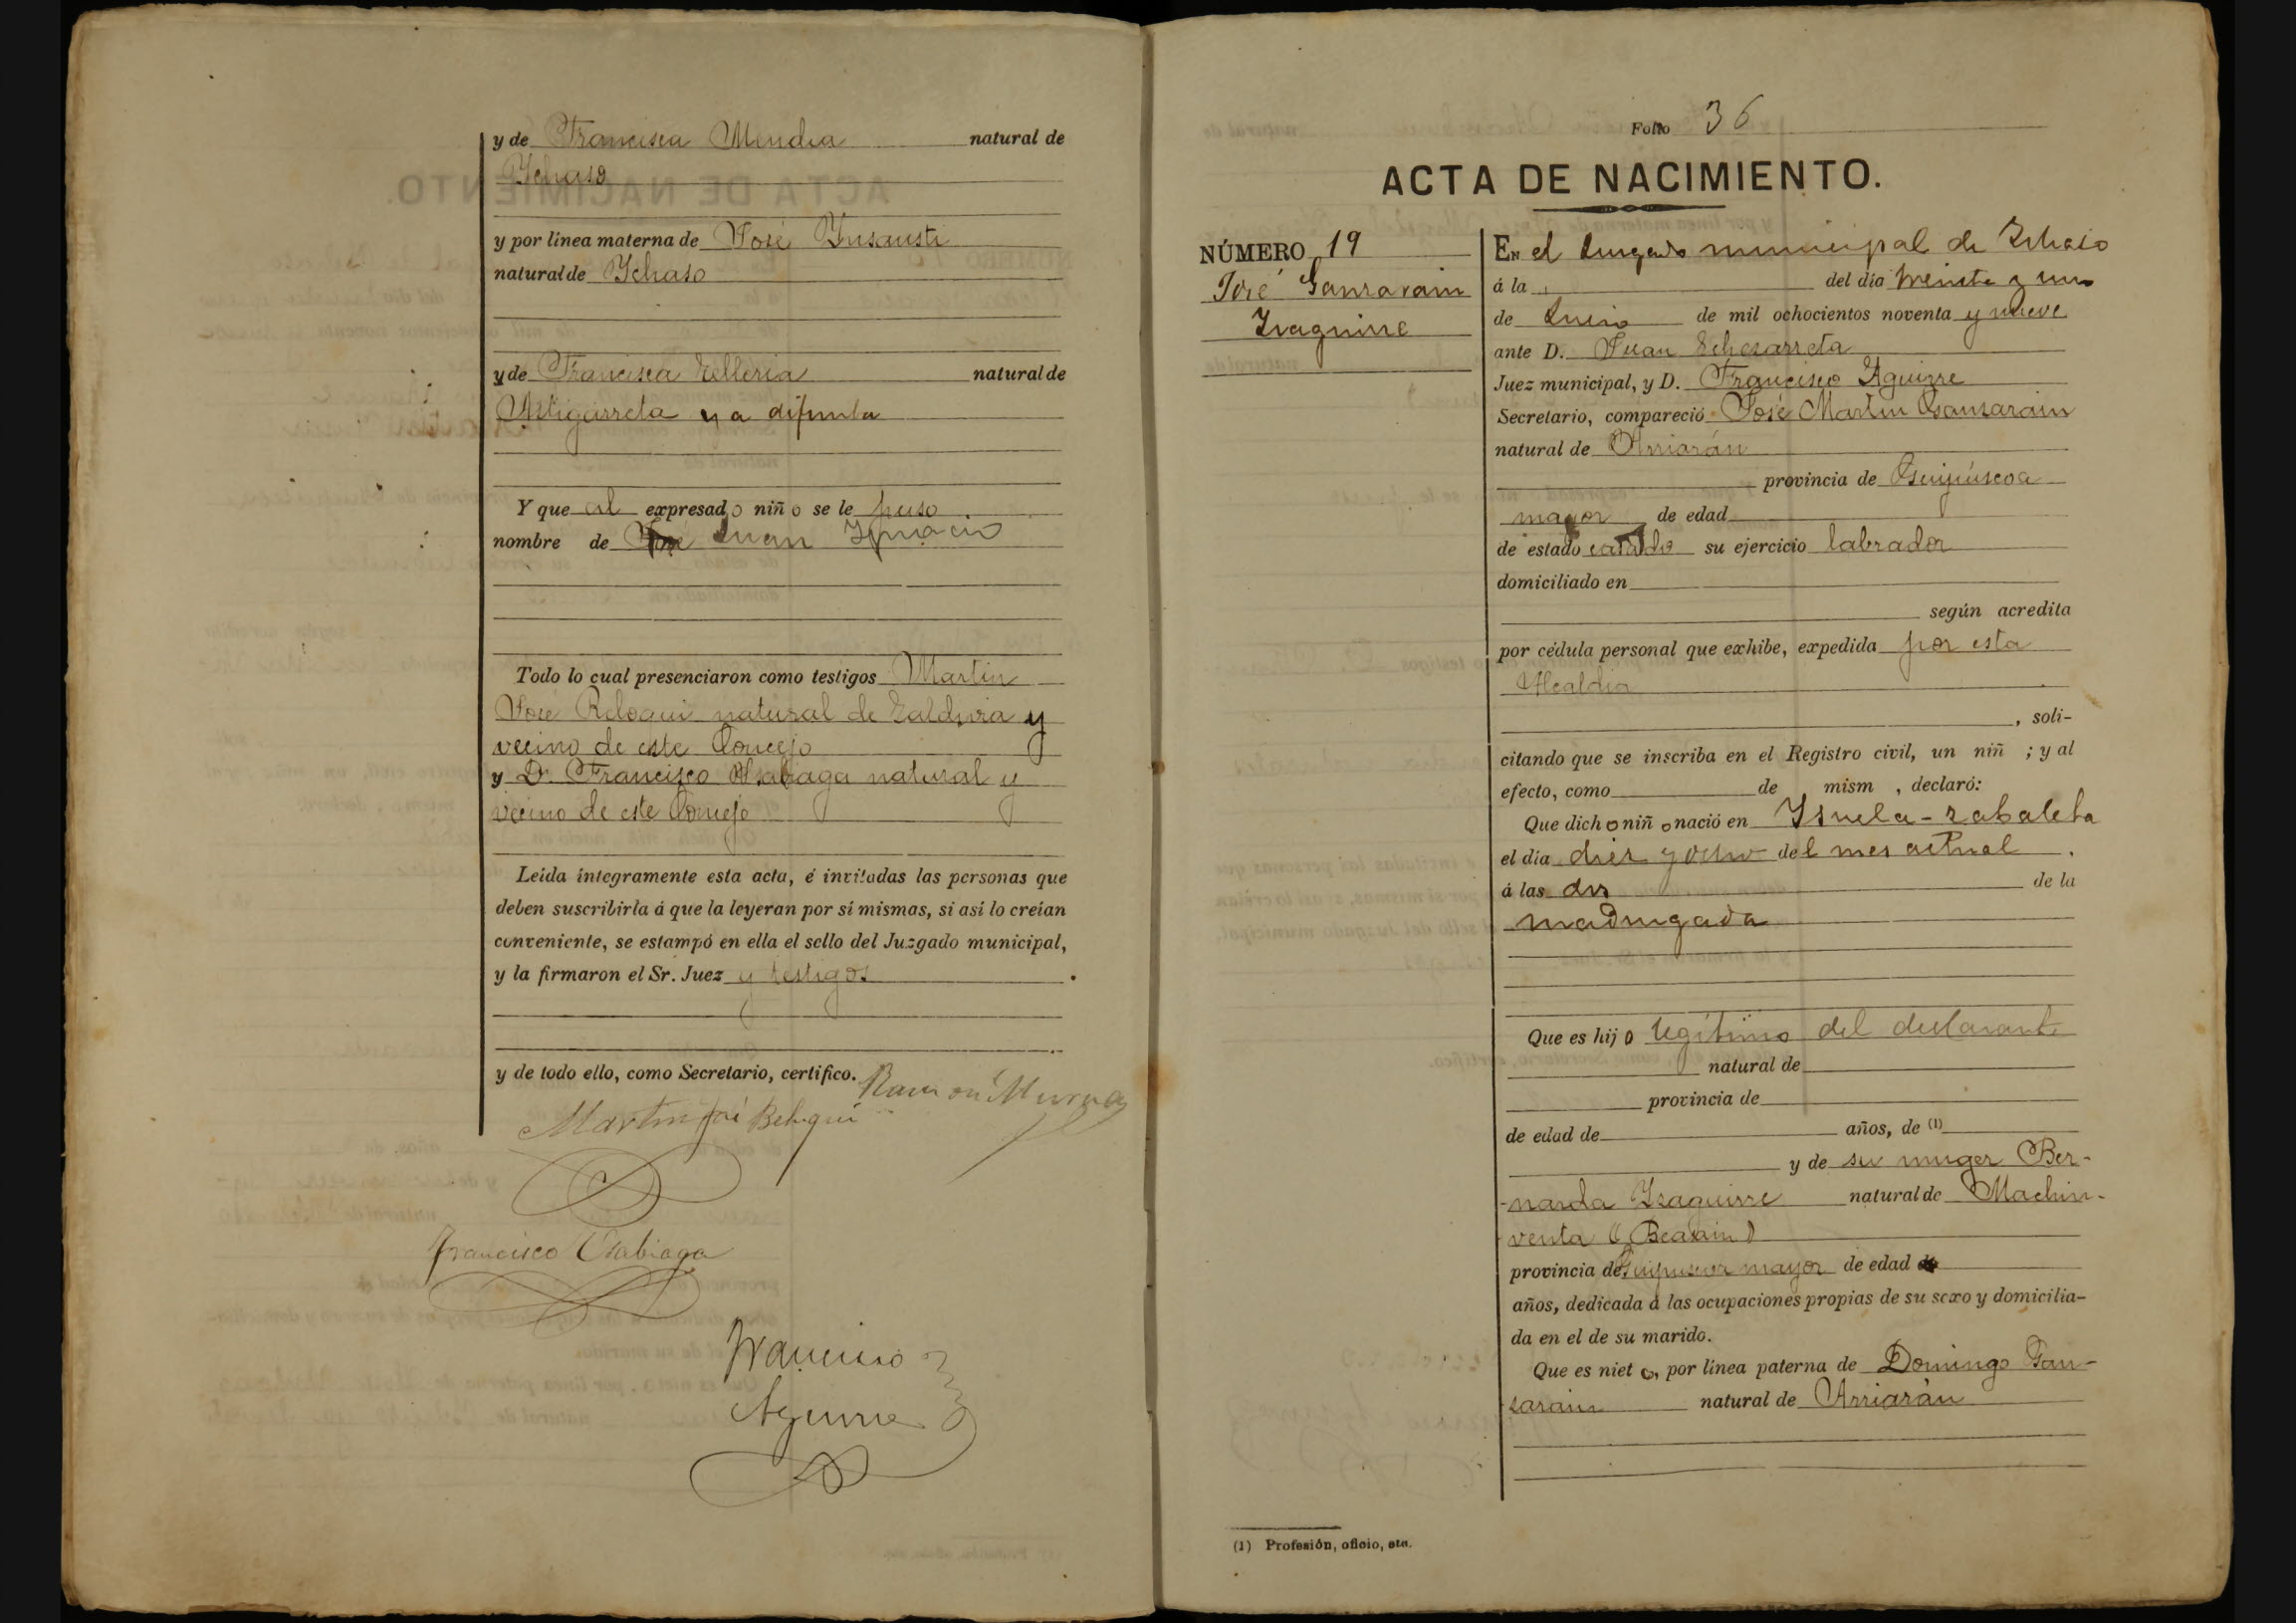 y de Francisca Mendia natural de
Ychaso
y por línea materna de José Ynsausti
natural de Ychaso
y de Francisca Telleria natural de
Astigarreta ya difunta
Y que al expresado niño se le puso
nombre de Juan Ygnacio
Todo lo cual presenciaron como testigos Martin
José natural de Zaldivia y
vecino de este Concejo
y D. Francisco natural y
vecino de este Concejo
Leída íntegramente esta acta, é invitadas las personas que
deben suscribirla á que la leyeran por sí mismas, si así lo creían
conveniente, se estampó en ella el sello del Juzgado municipal,
y la firmaron el Sr. Juez y testigos.
y de todo ello, como Secretario, certifico.
Ramón Murua
Martin José Beloqui
Francisco Usabiaga
Francisco
Aguirre
Folio 36
ACTA DE NACIMIENTO.
NÚMERO 19
José Ganzarain
Yzaguirre
En el Juzgado municipal de Ichaso
á la del día treinta y uno
de Junio de mil ochocientos noventa y nueve
ante D. Juan Echezarreta
Juez municipal, y D. Francisco Aguirre
Secretario, compareció José Martin Ganzarain
natural de Arriarán
provincia de Guipúscoa
mayor de edad
de estado casado su ejercicio labrador
domiciliado en
según acredita
por cédula personal que exhibe, expedida por esta
Alcaldia
, soli-
citando que se inscriba en el Registro civil, un niñ ; y al
efecto, como de mism , declaró:
Que dicho niño nació en Ysuela-zabaleta
el día diez y ocho del mes actual.
á las dos de la
madrugada
Que es hijo legítimo del declarante
natural de
provincia de
de edad de años, de (1)
y de su muger Ber-
-narda Yzaguirre natural de Machin-
venta (Beasain)
provincia de Guipuscoa mayor de edad
años, dedicada á las ocupaciones propias de su sexo y domicilia-
da en el de su marido.
Que es nieto, por línea paterna de Domingo Gan-
zarain natural de Arriarán
(1) Profesión, oficio, etc.